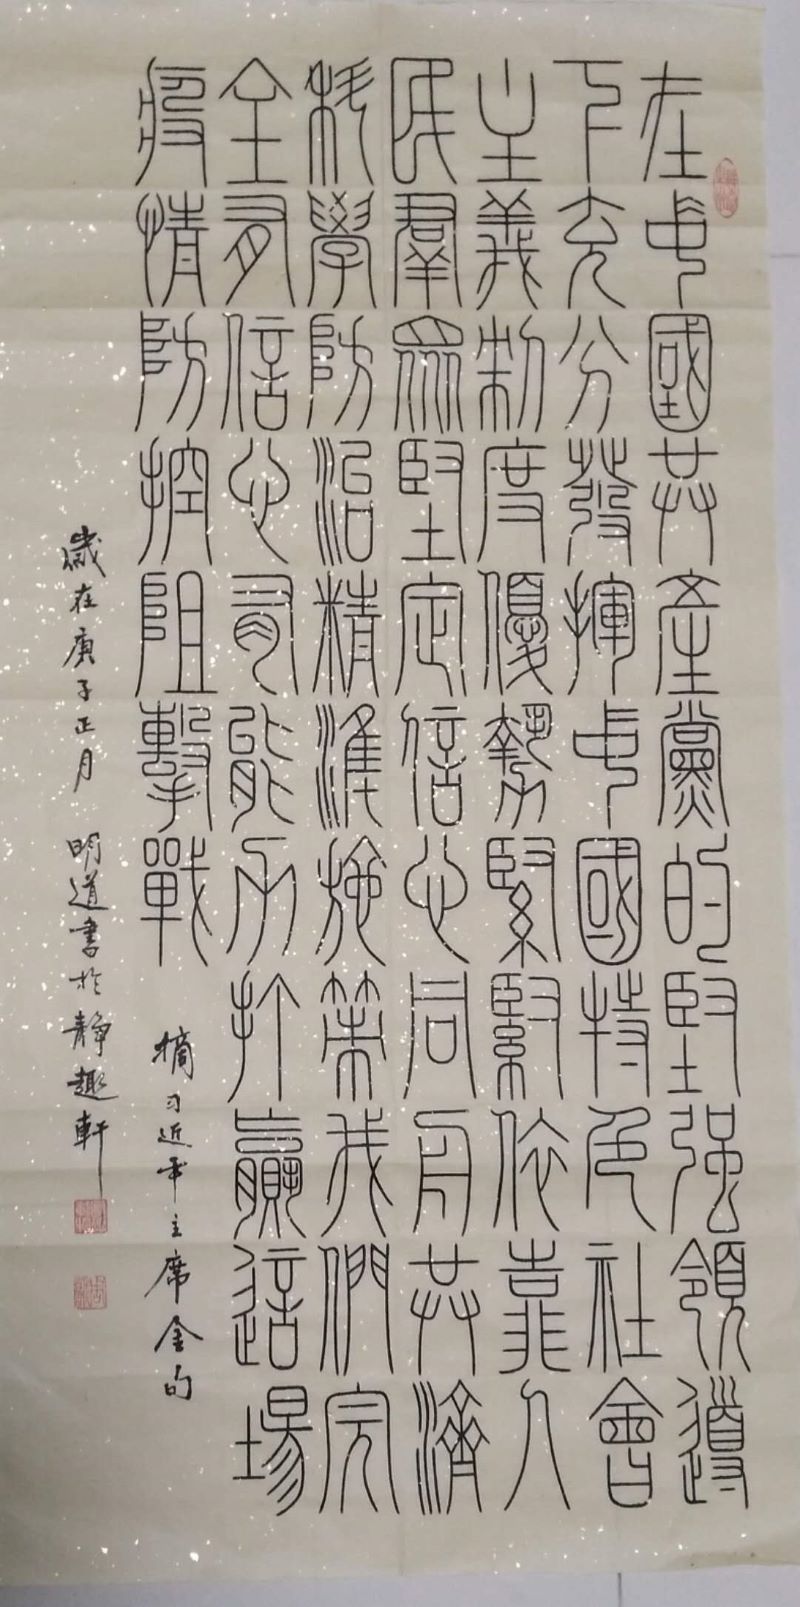 在中國共產黨的堅强領導
下充分發揮中國特色社會
主義制度優勢緊緊依靠人
民羣眾堅定信心同舟共濟
科學防治精準施策我們完
全有信心有能力打贏這場
疫情防控阻擊戰
摘习近平主席金句
歲在庚子正月 明道書於靜趣軒